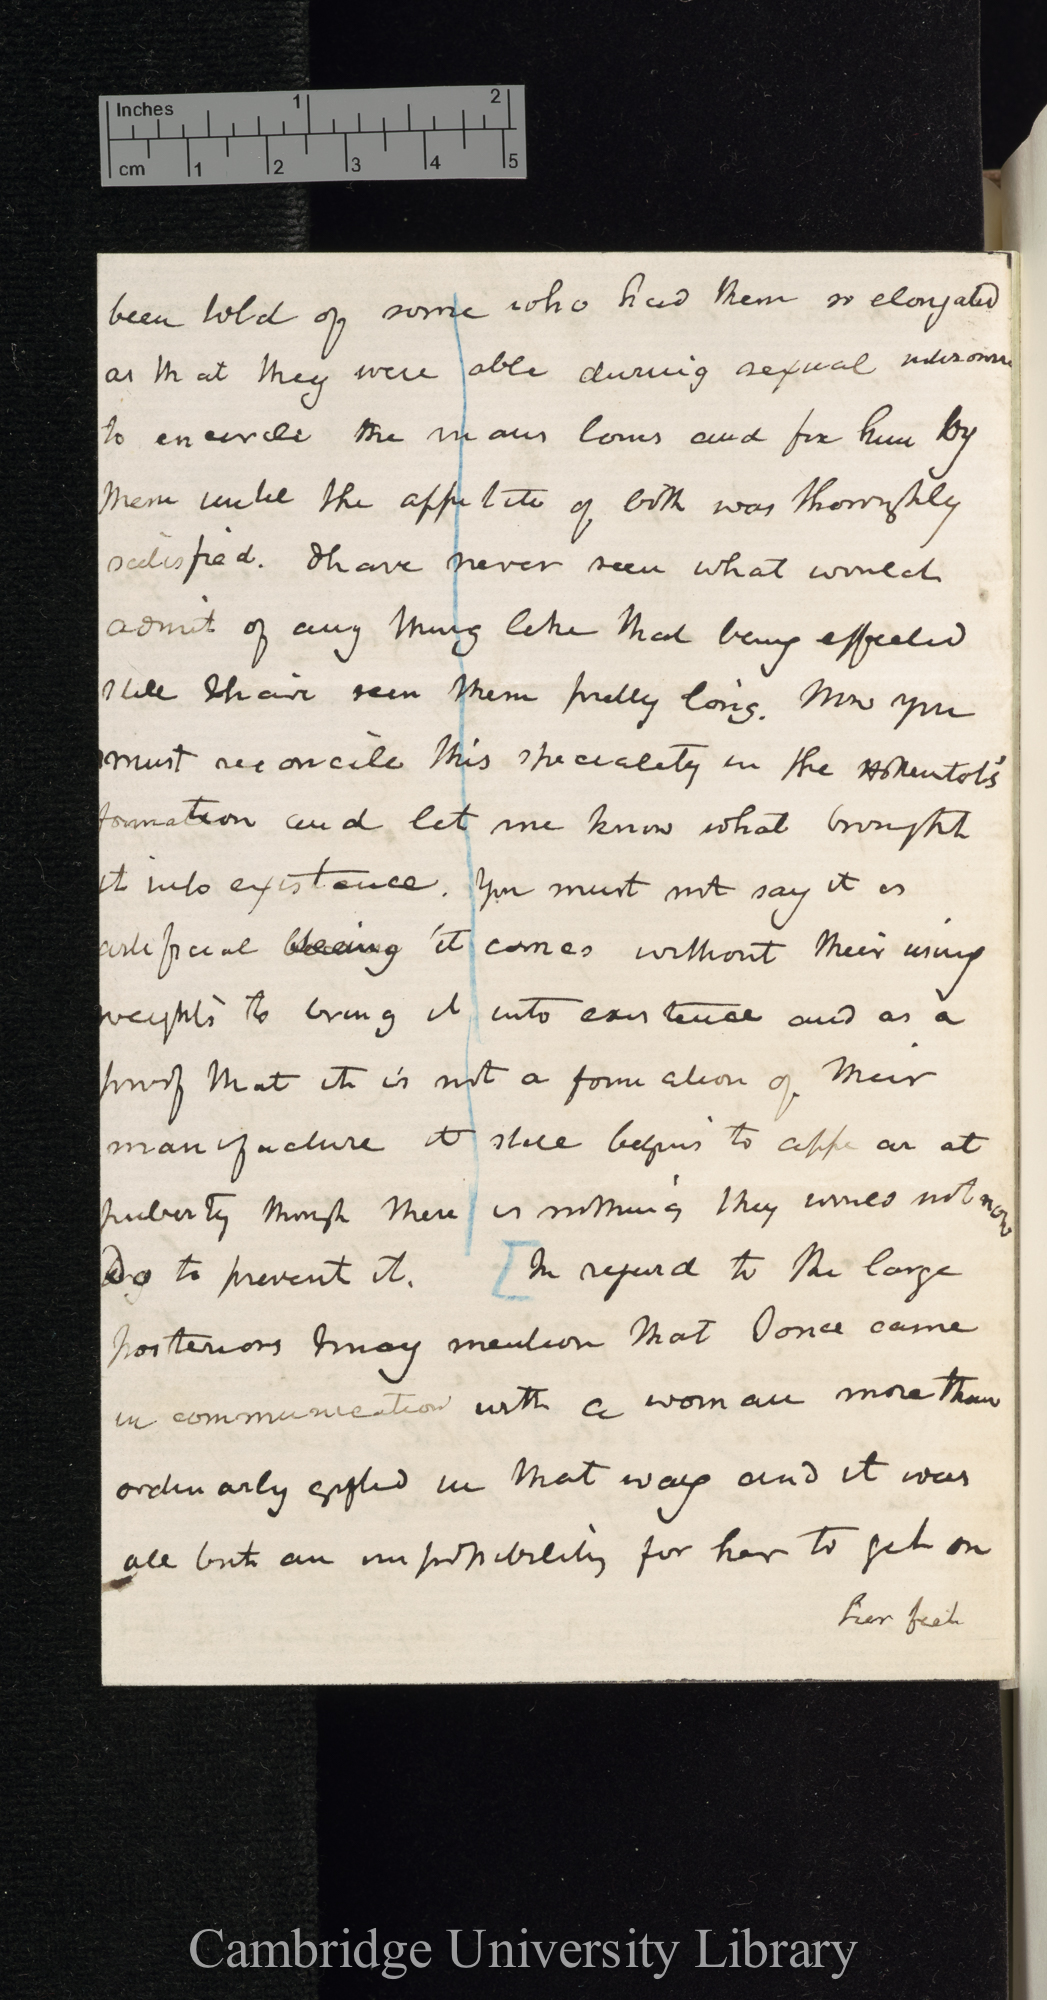 Inches 1 2
cm 1 2 3 4 5
been told of some who had them so elongated
as that they were able during sexual
to encircle the mans loins and fix him by
them until the appetite of both was thoroughly
satisfied. I have never seen what would
admit of any thing like that being effected
still I have seen them pretty long. Now you
must reconcile this speciality in the Hottentots
formation and let me know what brought
it into existence. You must not say it is
artificial it comes without their using
weights to bring it into existence and as a
proof that it is not a formation of their
manufacture it still begins to appear at
puberty though there is nothing they would not now
do to prevent it. [In regard to the large
posteriors I may mention that I once came
in communication with a woman more than
ordinarly gifted in that way and it was
all but an impossibility for her to get on
her feet
Cambridge University Library